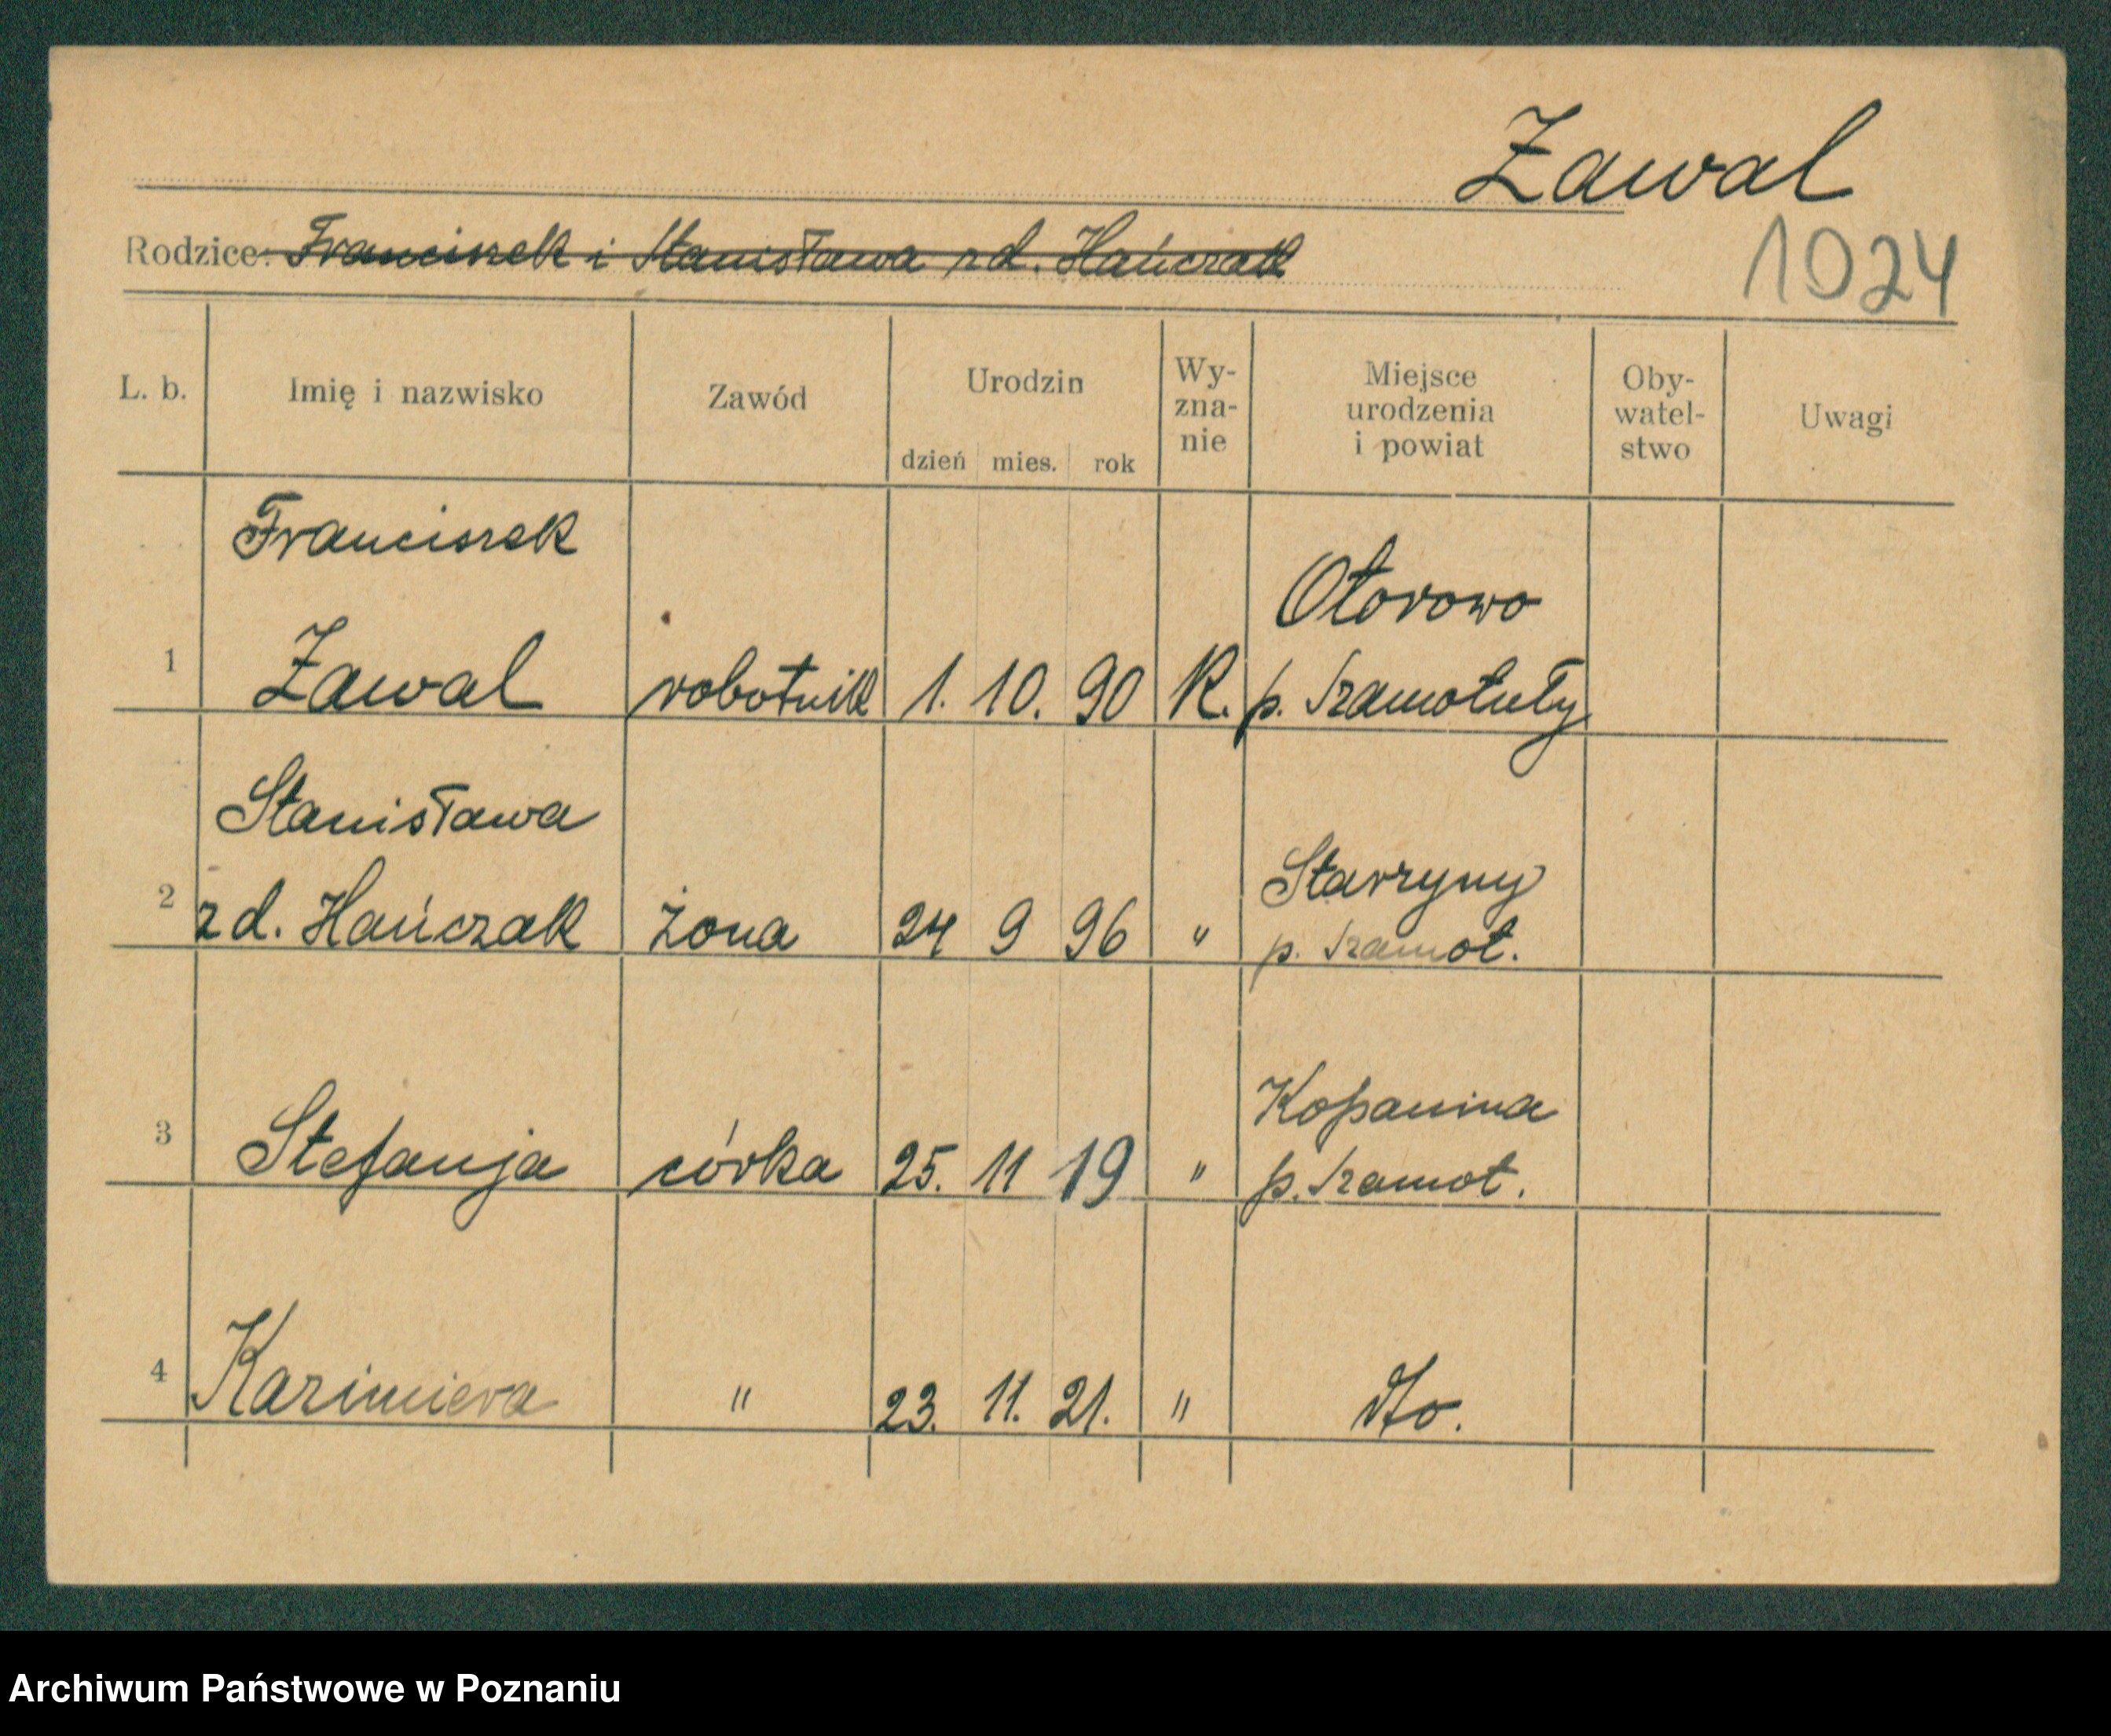 Zawal
Rodzice: Franciszek i Stanisława zd. Hańczak
1024
L. b. Imię i nazwisko Zawód Urodzin dzień mies. rok Wy-
zna-
nie Miejsce
urodzenia
i powiat Oby-
watel-
stwo Uwagi
Franciszek
Otorowo
1 Zawal robotnik 1. 10. 90 K. p. Szamotuły
Stanisława
Starzyny
2 zd. Hańczak żona 24 9 96 " p. Szamot.
Kopanina
3 Stefanja córka 25. 11 19 " p. Szamot.
4 Kazimiera " 23. 11. 21. " dto.
Archiwum Państwowe w Poznaniu